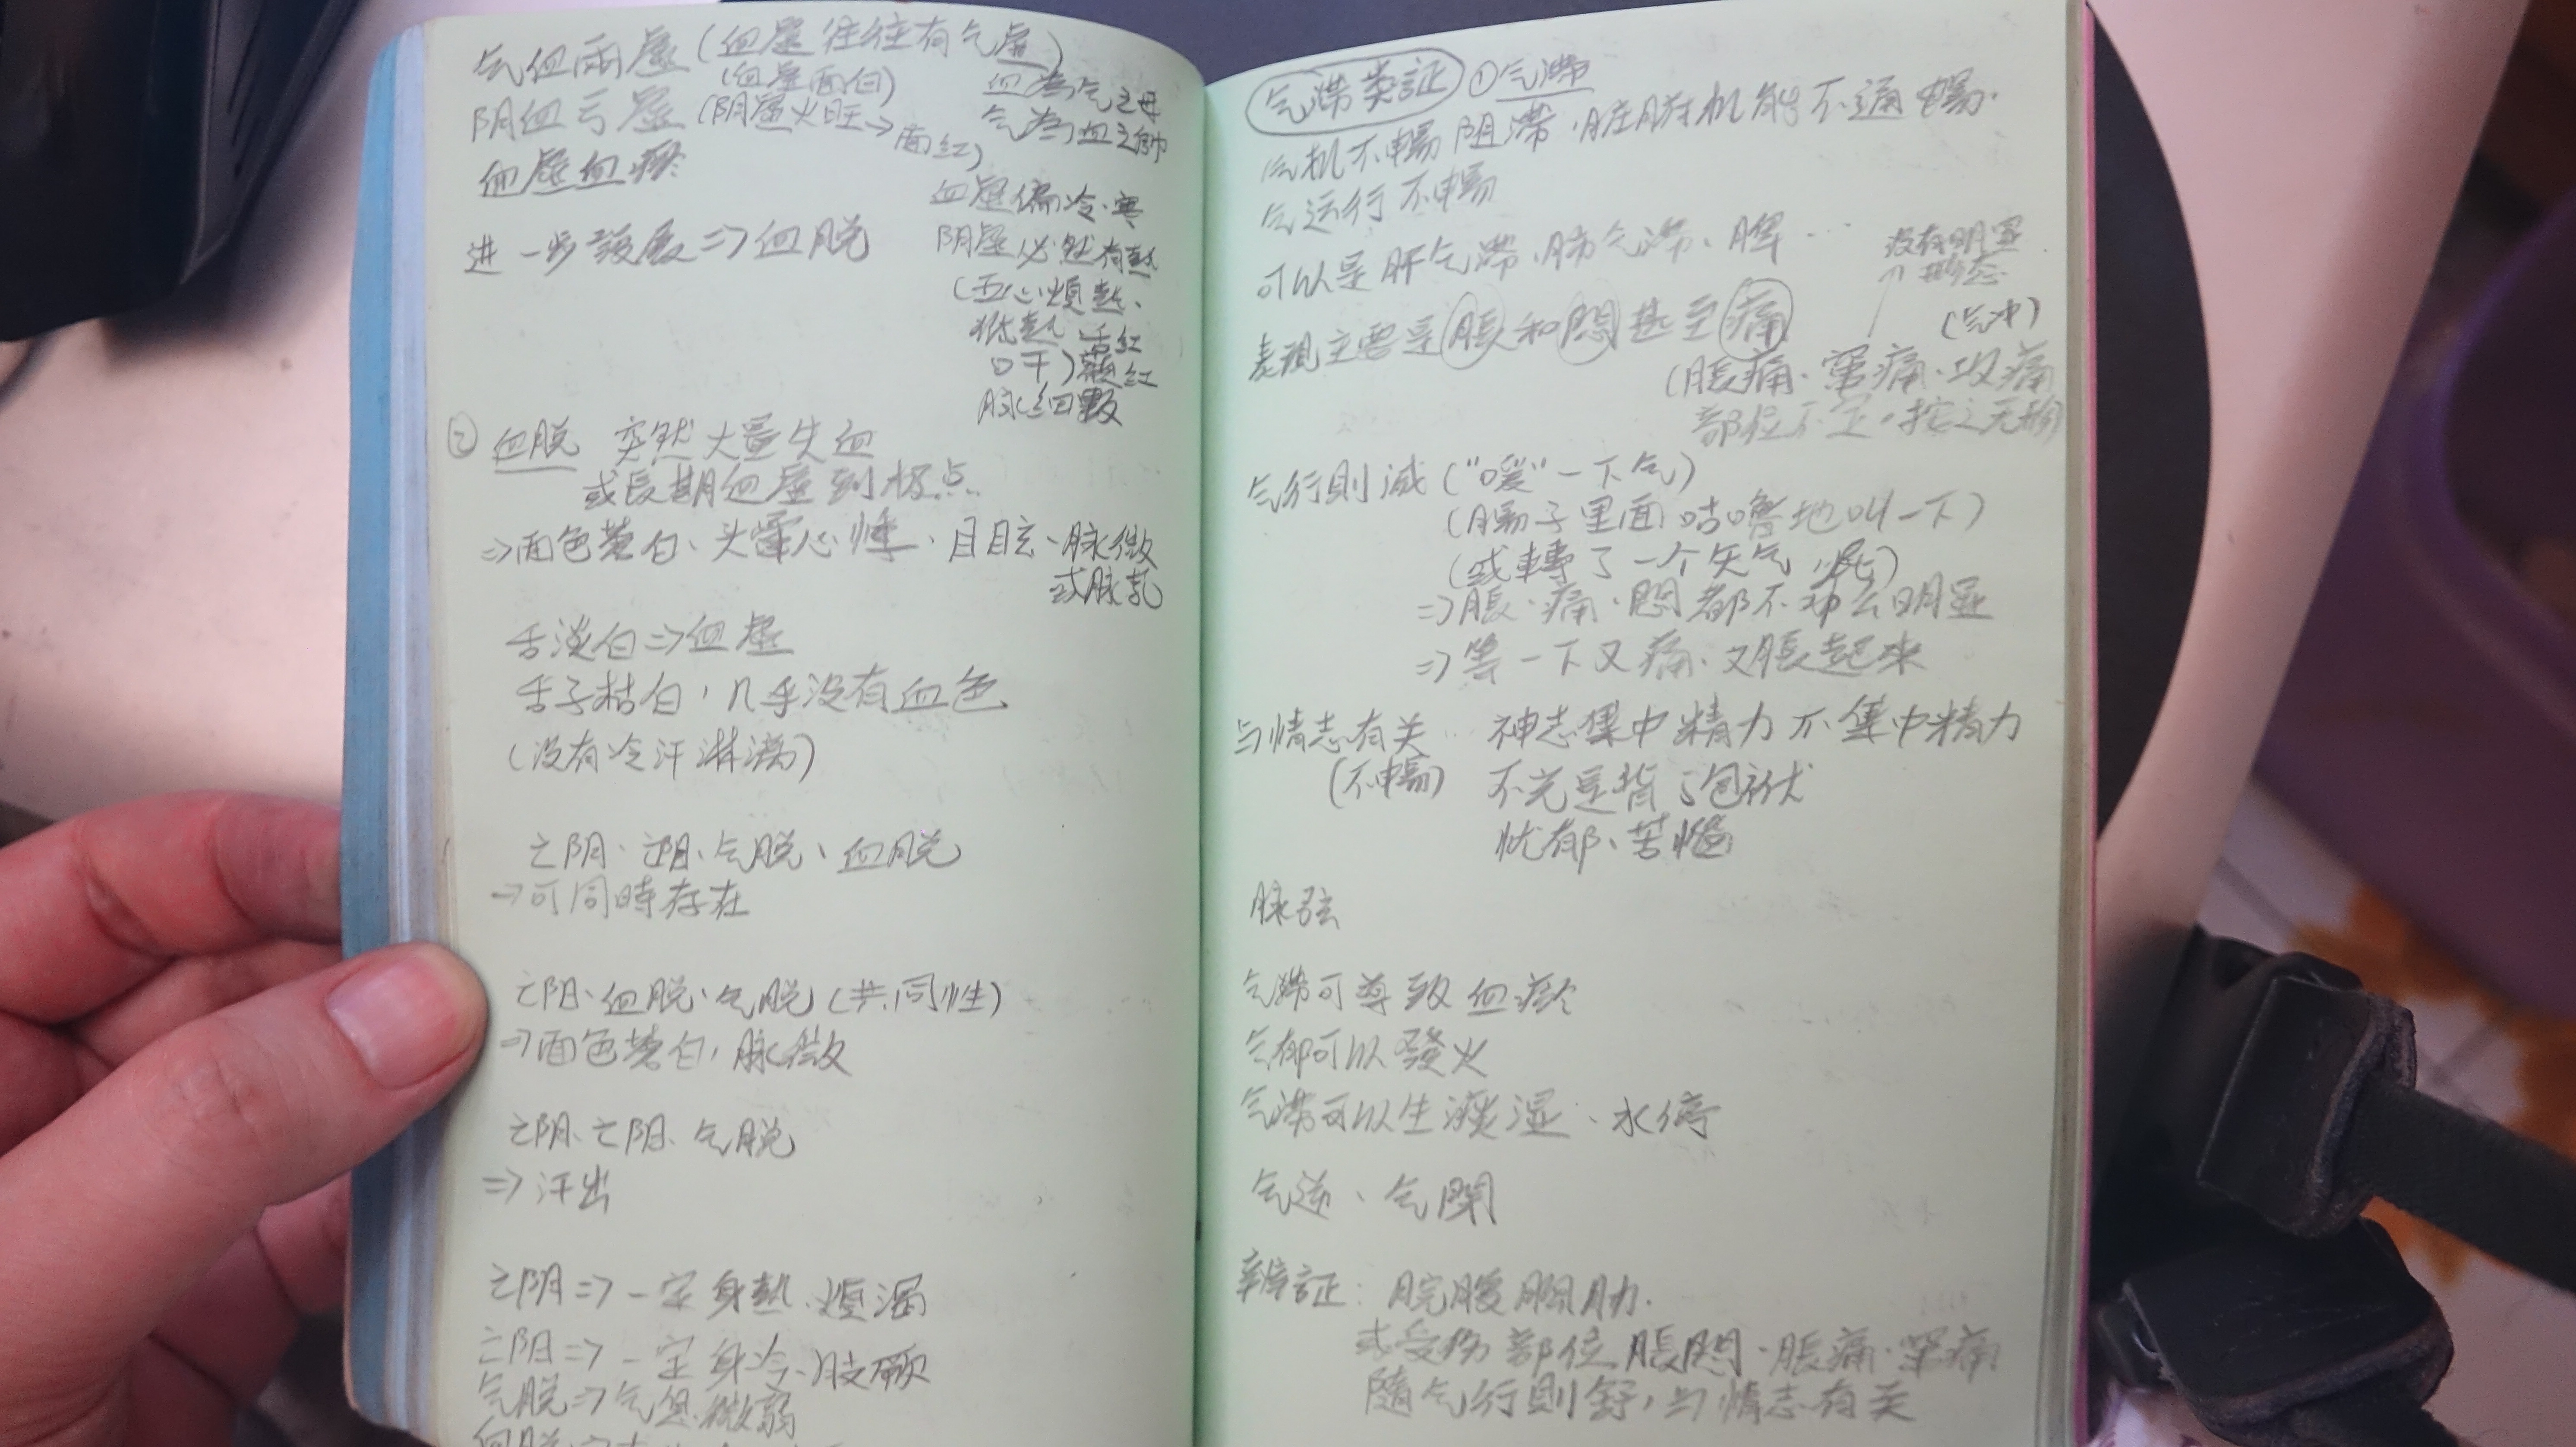 气血兩虛(血虛往往有气虛)
(血虛面白)
血為气之母
阴血亏虛(阴虛火旺→面紅)
气為血之帥
血虛血瘀
血虛偏冷、寒
进一步發展⇒血脱
阴虛必然有熱
(五心煩熱、
低熱、舌紅
口干)顴紅
脉細數
② 血脱 突然大量失血
或長期血虛到极点
⇒面色蒼白、头暈心悸、目眩、脉微
或脉芤
舌淡白⇒血虛
舌子枯白,几乎没有血色
(没有冷汗淋漓)
亡阴、亡阳、气脱、血脱
→可同時存在
亡阳、血脱、气脱(共同性)
⇒面色蒼白,脉微
亡阴、亡阳、气脱
⇒汗出
亡阴⇒一定身熱、煩渴
亡阳⇒一定身冷、肢厥
气脱⇒气息微弱
血脱⇒
气滞类証 ①气滞
气机不暢阻滞,脏腑机能不通暢.
气运行不暢
可以是肝气滞、肺气滞、脾…
没有明显
形态
表現主要是脹和悶甚至痛
(气冲)
(脹痛、窜痛、攻痛
部位不定,按之无形)
气行則减("噯"一下气)
(腸子里面咕嚕地叫一下)
(或轉了一个矢气,屁)
⇒脹、痛、悶都不那么明显
⇒等一下又痛、又脹起来
与情志有关 神志集中精力不集中精力
(不暢) 不光是背了包袱
忧郁、苦惱
脉弦
气滞可導致血瘀
气郁可以發火
气滞可以生痰湿、水停
气逆、气閉
辨証:脘腹胸肋.
或受伤部位脹悶、脹痛、窜痛
隨气行則舒,与情志有关